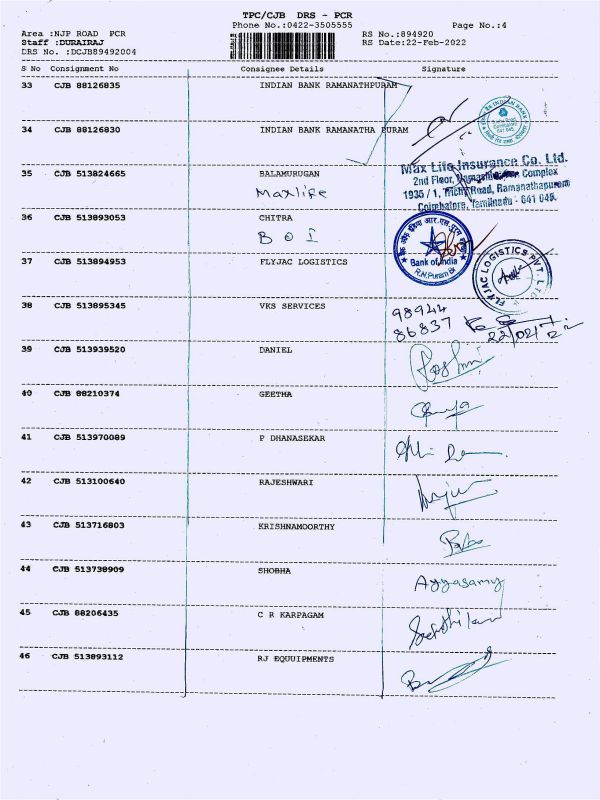 TPC/CJB DRS - PCR
Phone No.:0422-3505555
Page No.:4
Area :NJP ROAD PCR
RS No.:894920
Staff :DURAIRAJ
RS Date:22-Feb-2022
DRS No. :DCJB89492004
S No Consignment No Consignee Details Signature
33 CJB 88126835 INDIAN BANK RAMANATHPURAM
34 CJB 88126830 INDIAN BANK RAMANATHA PURAM
35 CJB 513824665 BALAMURUGAN
Maxlife
Max Life Insurance Co. Ltd.
2nd Floor, Complex
1935 / 1, Trichy Road, Ramanathapuram
Coimbatore, Tamilnadu - 641 045.
36 CJB 513893053 CHITRA
B O I
Bank of India
R.N.Puram Br
37 CJB 513894953 FLYJAC LOGISTICS
FLYJAC LOGISTICS PVT. LTD.
38 CJB 513895345 VKS SERVICES
98944
86837
22/02/22
39 CJB 513939520 DANIEL
40 CJB 88210374 GEETHA
41 CJB 513970089 P DHANASEKAR
42 CJB 513100640 RAJESHWARI
43 CJB 513716803 KRISHNAMOORTHY
44 CJB 513738909 SHOBHA
Ayyasamy
45 CJB 88206435 C R KARPAGAM
46 CJB 513893112 RJ EQUUIPMENTS